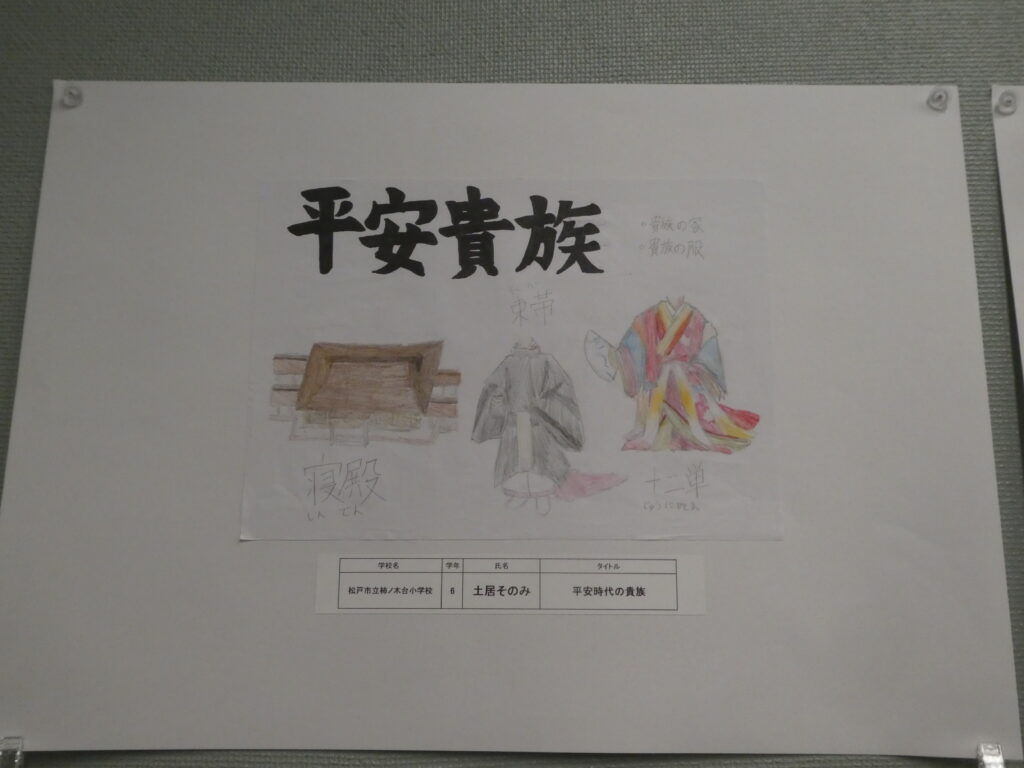 平安貴族
・貴族の家
・貴族の服
束帯
寝殿
しん でん
十二単
じゅうにひとえ
学校名 学年 氏名 タイトル
松戸市立柿ノ木台小学校 6 土居そのみ 平安時代の貴族